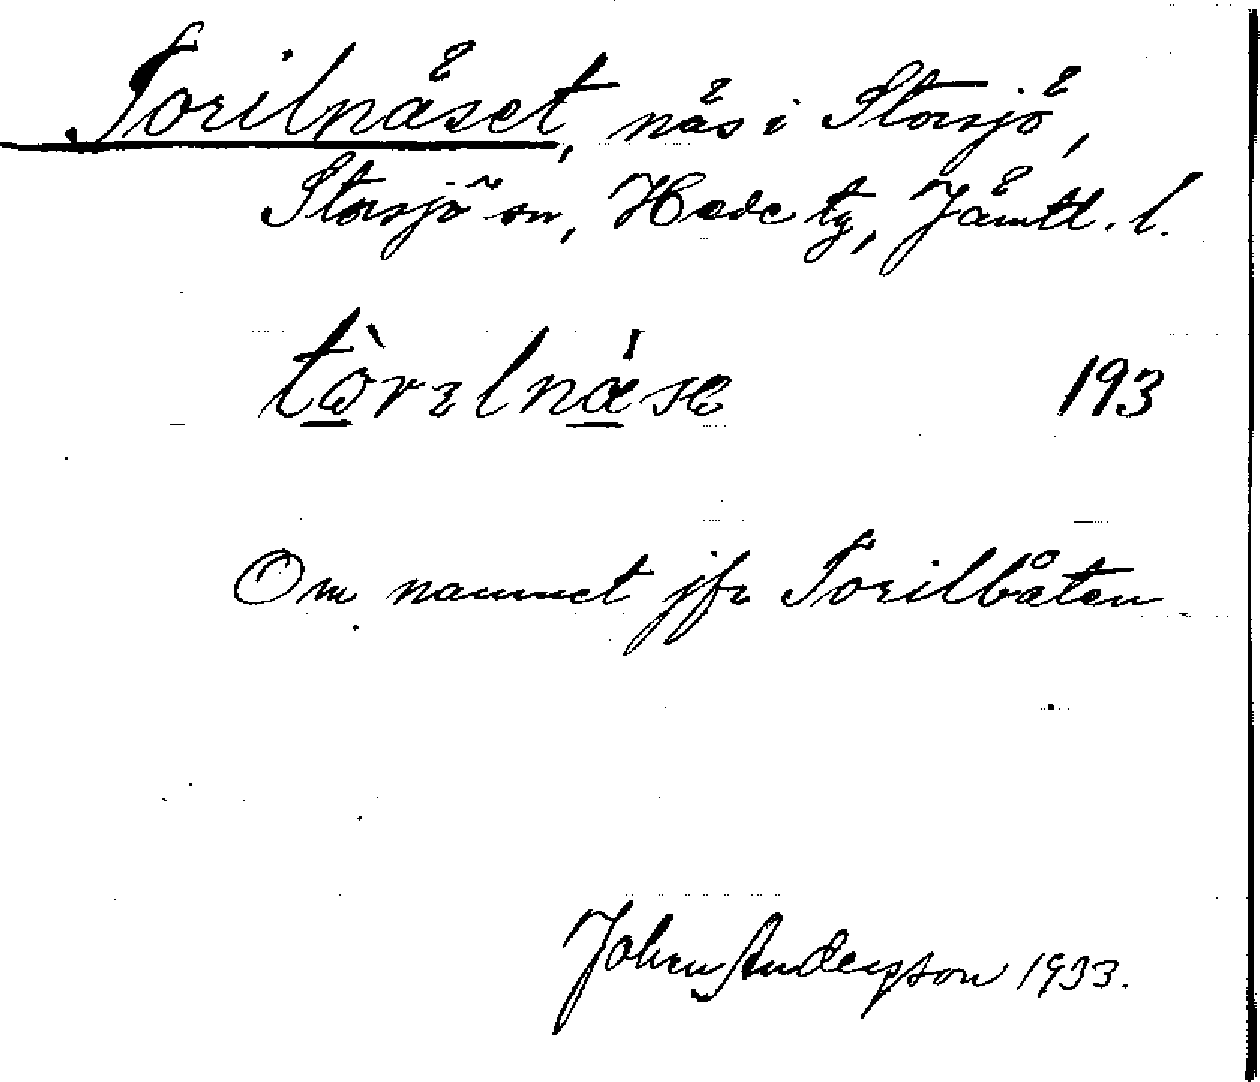 Torilnäset, näs i Storsjö,
Storsjö sn, Hede tg, Jämtl. l.
tòrₔlnæ̍se 193
Om namnet jfr Torilbåten
John Anderson 1933.